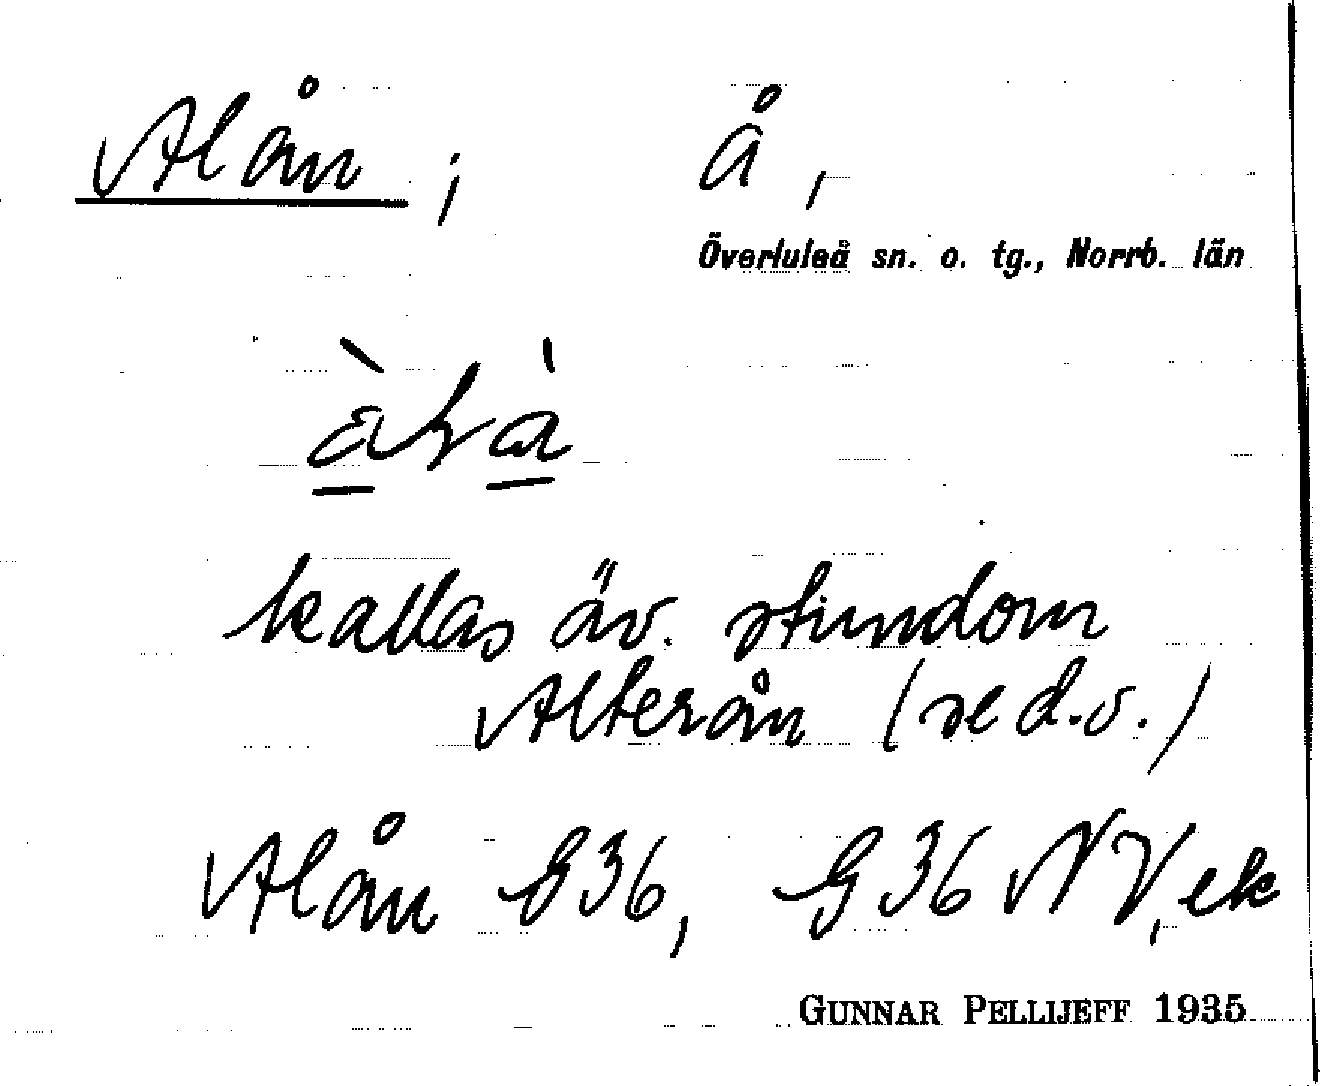 Alån ; å ,
Överluleå sn. o. tg., Norrb. län
kallas äv. stundom
Alterån (se d.o.)
Alån G36, G36 NV, ek
GUNNAR PELLIJEFF 1935